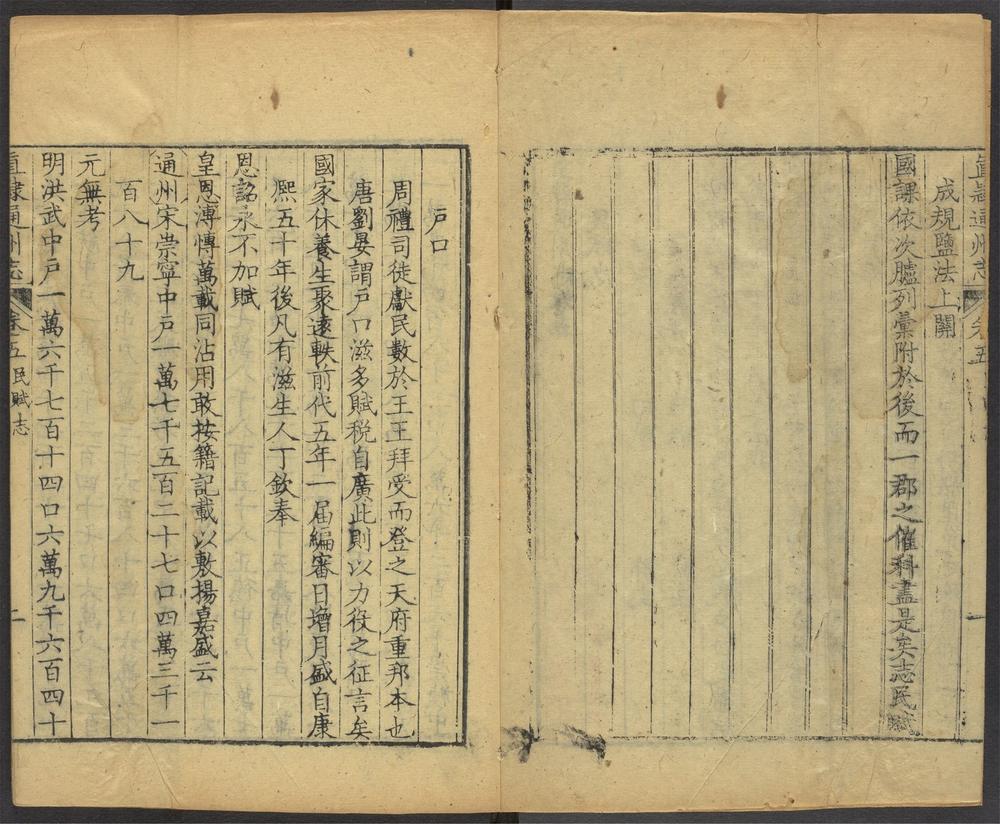 直隸通州志 卷五 一
成規鹽法上關
國課依次臚列彙附於後而一郡之催科盡是矣志民賦
戸口
周禮司徒獻民數於王王拜受而登之天府重邦本也
唐劉晏謂戸口滋多賦税自廣此則以力役之征言矣
國家休養生聚遠軼前代五年一届編審日增月盛自康
熈五十年後凡有滋生人丁欽奉
恩詔永不加賦
皇恩溥慱萬載同沾用敢按籍記載以敷揚嘉盛云
通州宋崇寧中戸一萬七千五百二十七口四萬三千一
百八十九
元無考
明洪武中戸一萬六千七百十四口六萬九千六百四十
直隸通州志 卷五 民賦志 二